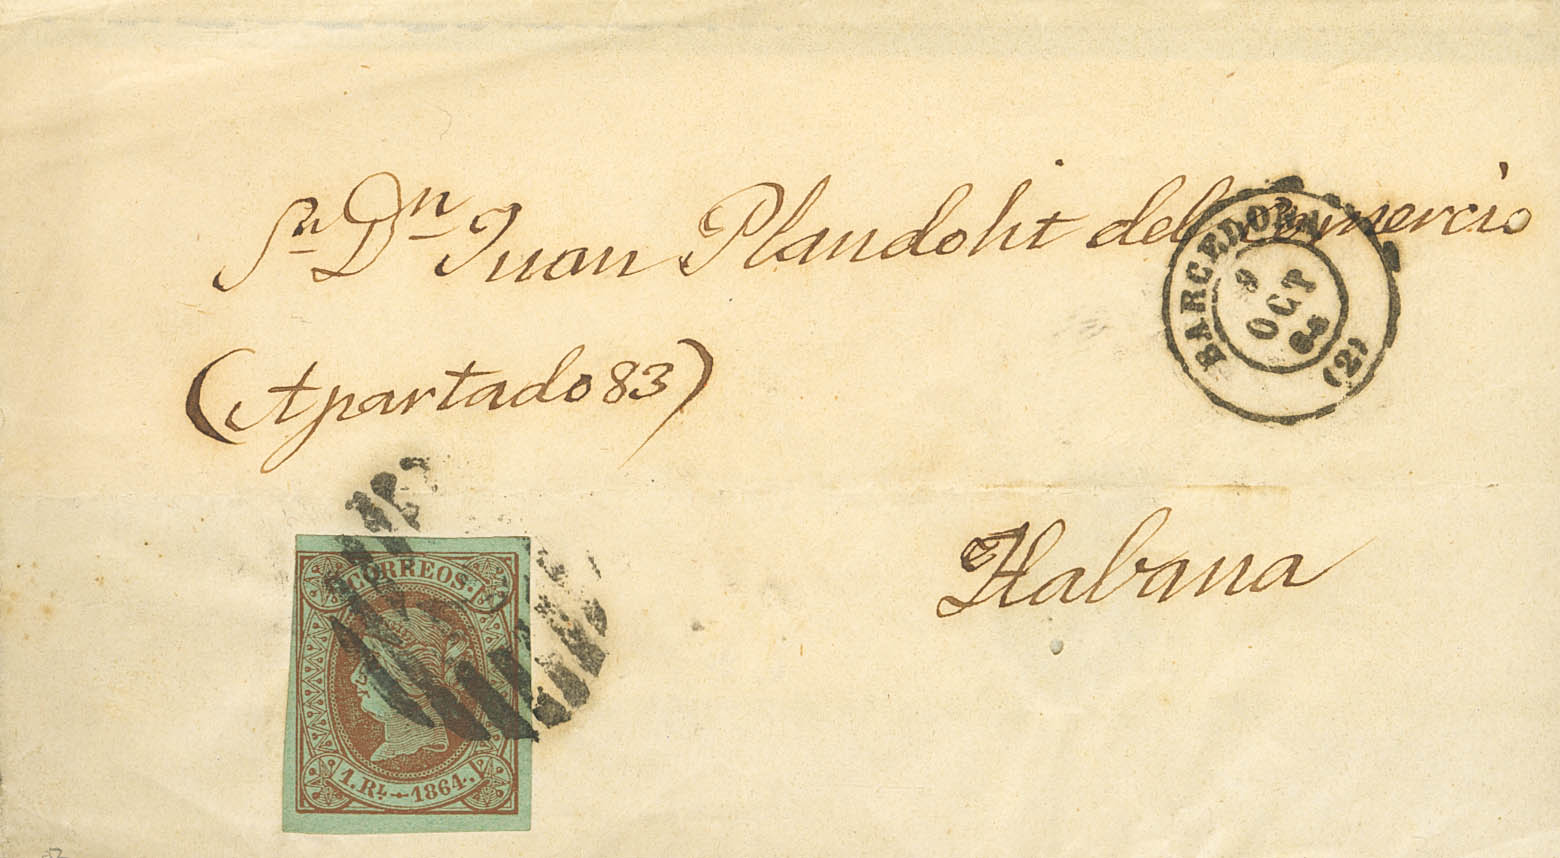 Sr Dn Juan Plandolit del Comercio
(Apartado 83)
BARCELONA
9
OCT
65
(2)
Habana
CORREOS.
1. RL - 1864.